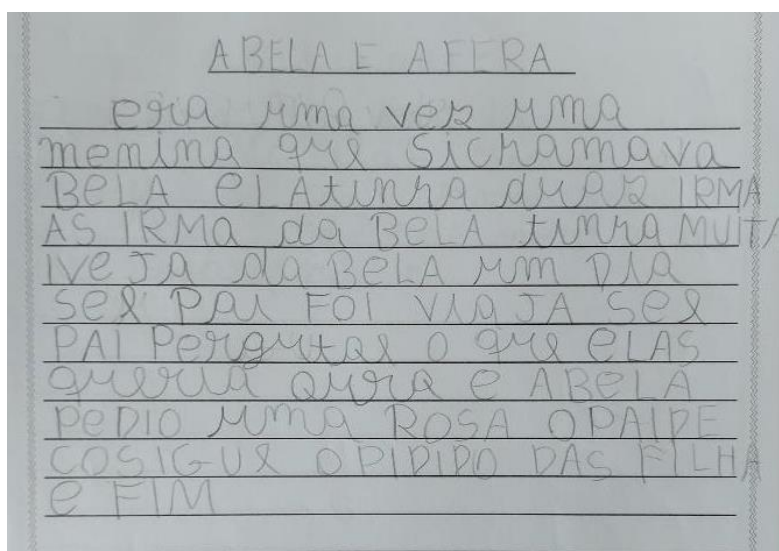 ABELA E AFERA
era uma vez uma
menina que sichamava
BELA ELAtinha duaz IRMA
AS IRMA da BELA tinha MUITA
IVEJA da BELA um DIA
seu PAI FOI VIAJA seu
PAI Pergutou o que ELAS
queria oura e ABELA
PEDIO uma ROSA OPAIPE
COSIGUU OPIDIDO DAS FILHA
e FIM